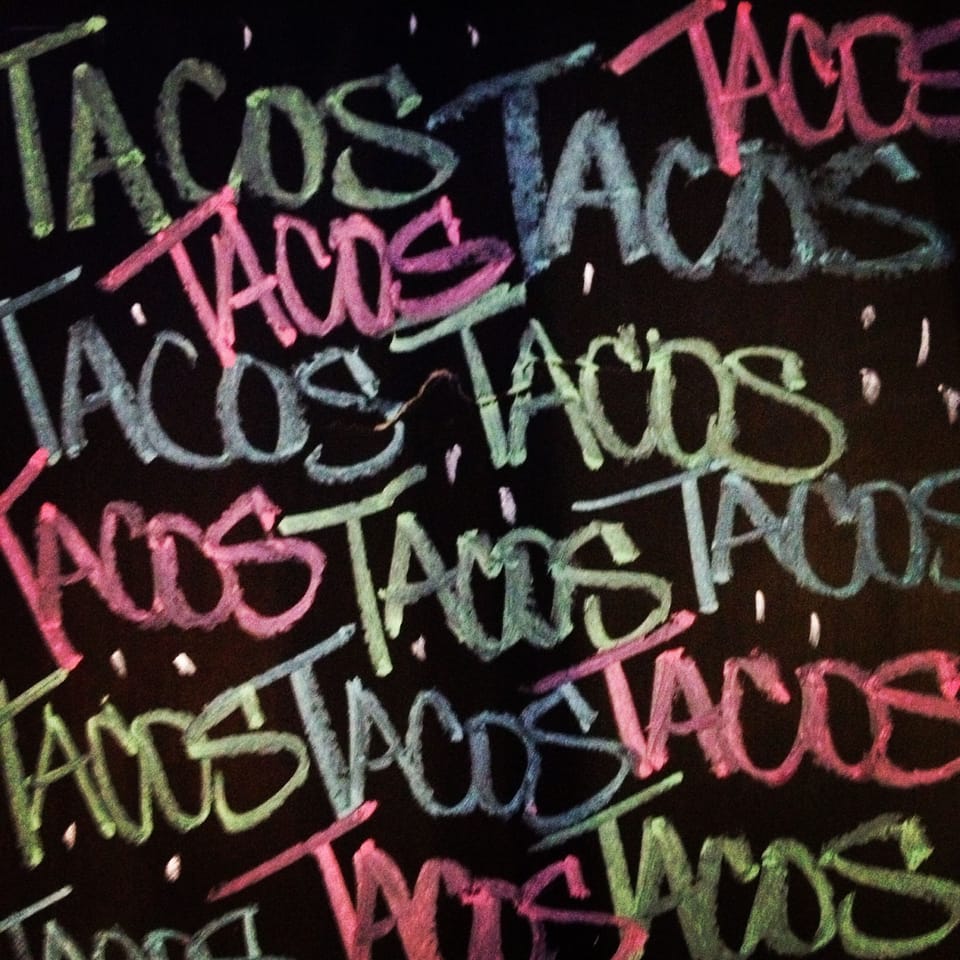 TACOS TACOS TACOS
TACOS
TACOS TACOS
TACOS TACOS TACOS
TACOS TACOS TACOS
TACOS TACOS TACOS